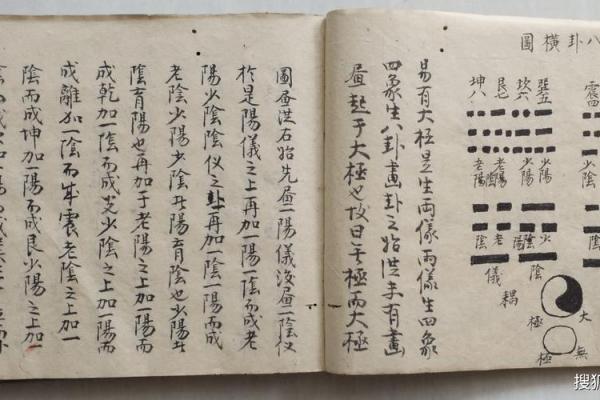 八卦橫圖
震四
巽五
坎六
艮七
坤八
少
陰
陰
儀
耦
大
極
無
極
易有大極是生兩儀兩儀生四象
四象生八卦畫卦之始洪未有畫
昼起于大極也故曰无極而大極
圖昼洪右始先昼一陽儀沒昼一陰儀
於是陽儀之上再加一陽一陰而成老
陽少陰陰儀之卦再加一陰一陽而成
老陰少陽少陰此陽育陰也少陽此
陰育陽也再加于老陽之上加一陽而
成乾加一陰而成兌少陰之上加一陽而
成離加一陰而成震老陰之上加一
陰而成坤加一陽而成艮少陽之上加一
搜狐